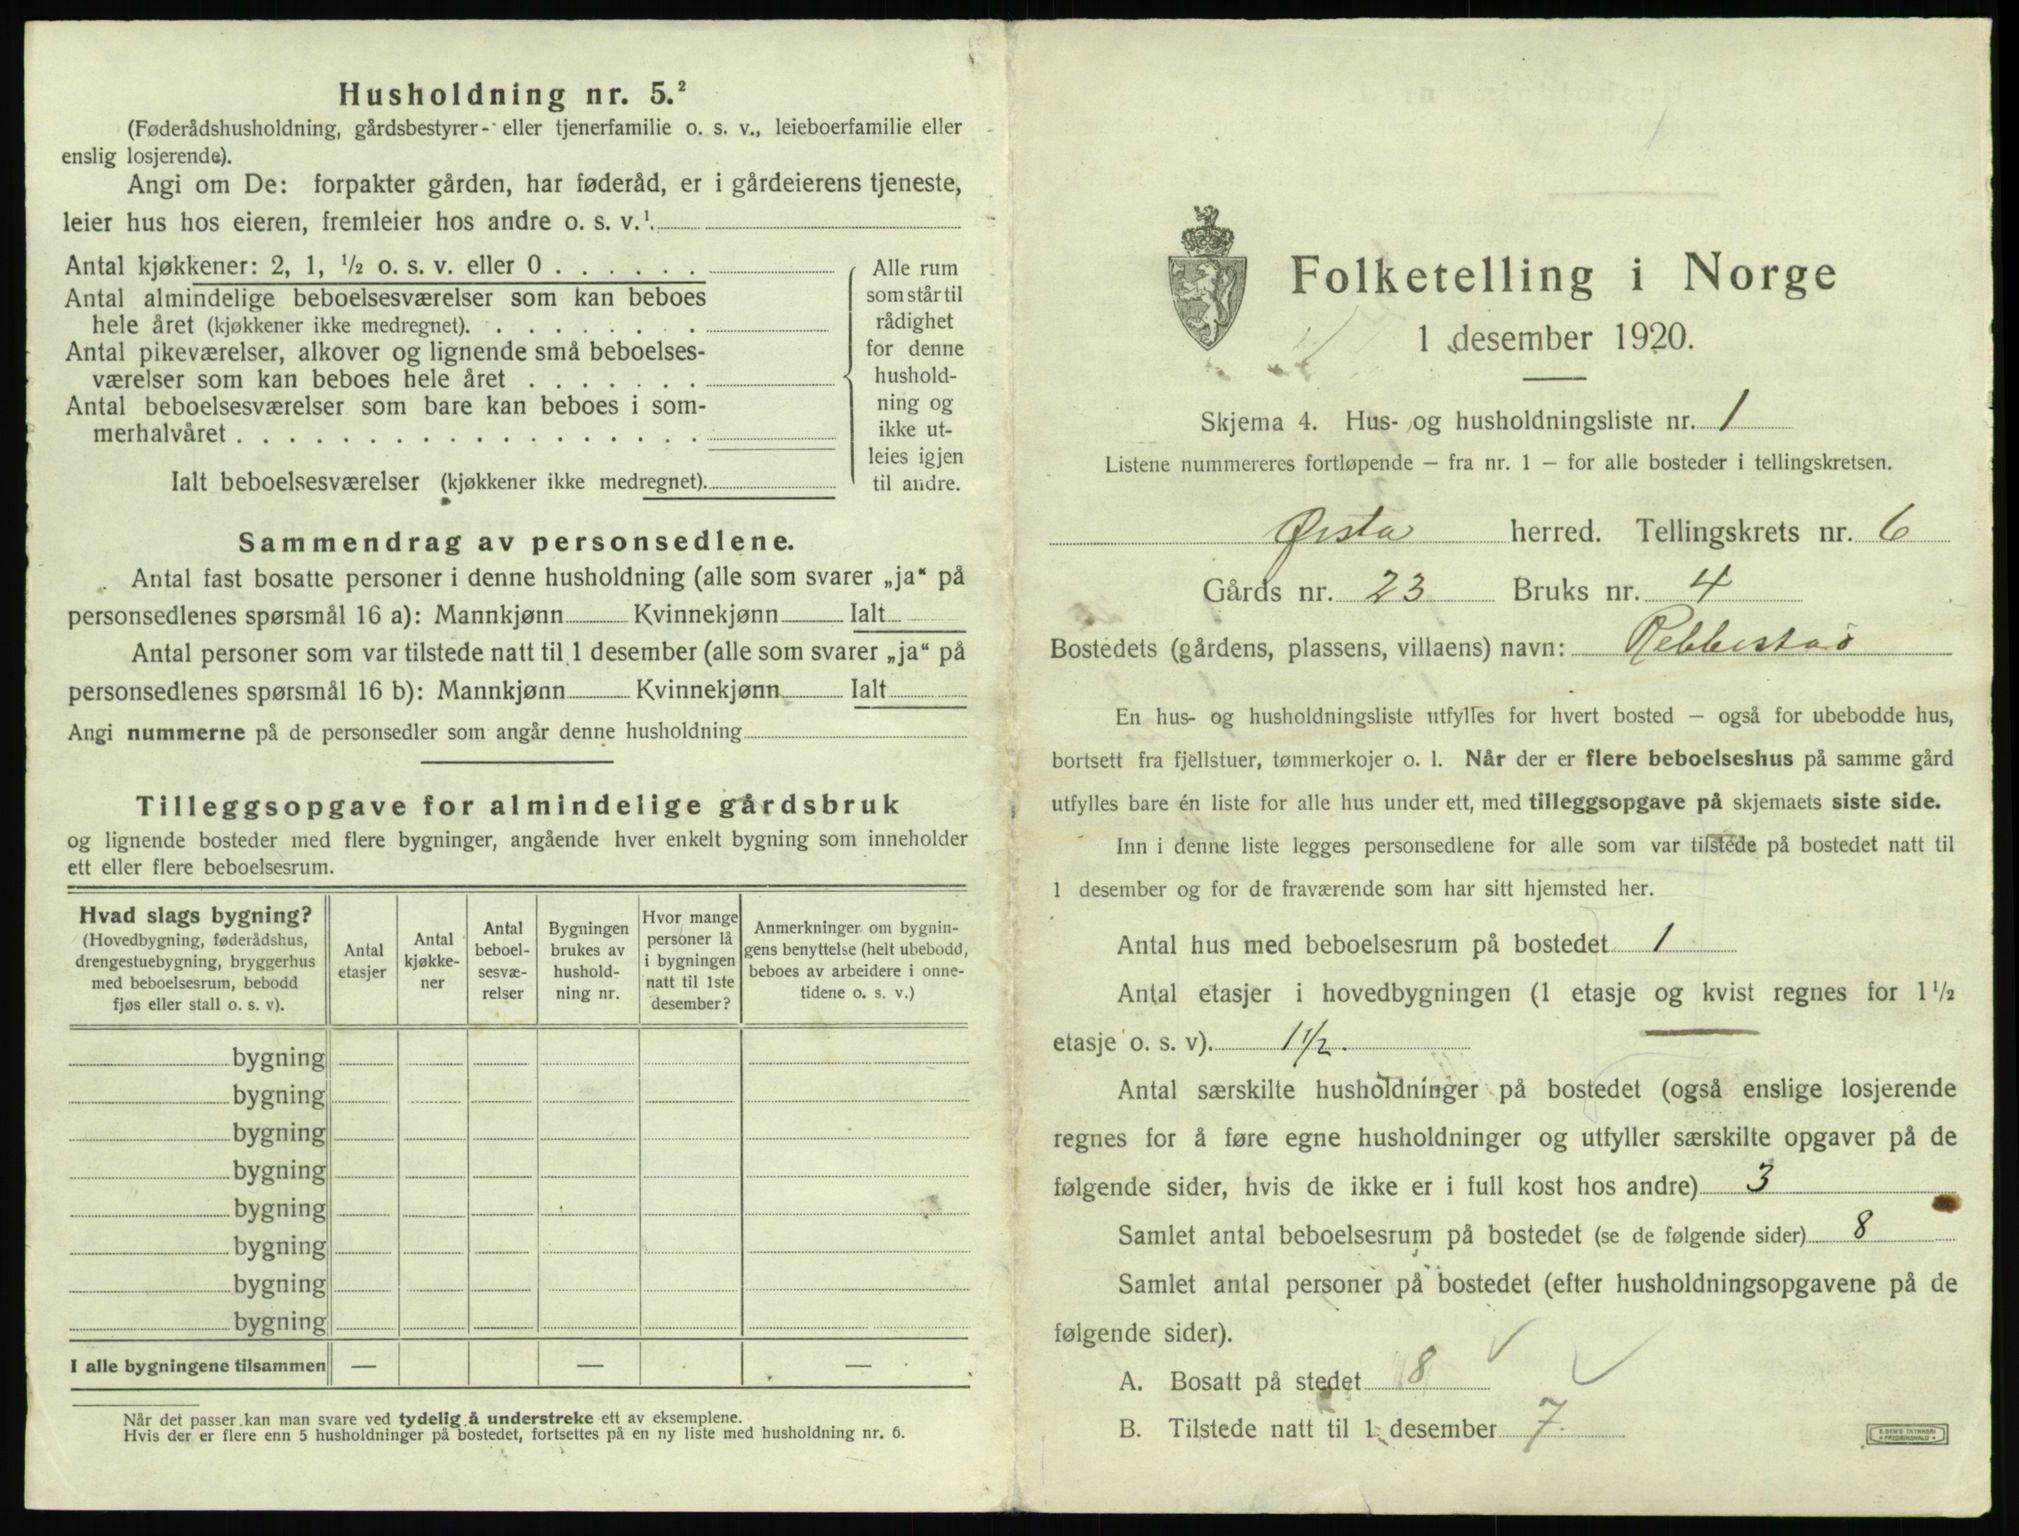 Husholdning nr. 5.²
(Føderådshusholdning, gårdsbestyrer- eller tjenerfamilie o. s. v., leieboerfamilie eller
enslig losjerende).
Angi om De: forpakter gården, har føderåd, er i gårdeierens tjeneste,
leier hus hos eieren, fremleier hos andre o. s. v.¹
Antal kjøkkener: 2, 1, ½ o. s. v. eller 0 . . . . . .
Antal almindelige beboelsesværelser som kan beboes
hele året (kjøkkener ikke medregnet). . . . . . . . .
Antal pikeværelser, alkover og lignende små beboelses-
værelser som kan beboes hele året . . . . . . .
Antal beboelsesværelser som bare kan beboes i som-
merhalvåret . . . . . . . . . . . . . . . . . .
Ialt beboelsesværelser (kjøkkener ikke medregnet).
Alle rum
som står til
rådighet
for denne
hushold-
ning og
ikke ut-
leies igjen
til andre.
Sammendrag av personsedlene.
Antal fast bosatte personer i denne husholdning (alle som svarer „ja“ på
personsedlenes spørsmål 16 a): Mannkjønn Kvinnekjønn Ialt
Antal personer som var tilstede natt til 1 desember (alle som svarer „ja“ på
personsedlenes spørsmål 16 b): Mannkjønn Kvinnekjønn Ialt
Angi nummerne på de personsedler som angår denne husholdning
Tilleggsopgave for almindelige gårdsbruk
og lignende bosteder med flere bygninger, angående hver enkelt bygning som inneholder
ett eller flere beboelsesrum.
Hvad slags bygning?
(Hovedbygning, føderådshus,
drengestuebygning, bryggerhus
med beboelsesrum, bebodd
fjøs eller stall o. s. v).
Antal
etasjer
Antal
kjøkke-
ner
Antal
beboel-
sesvæ-
relser
Bygningen
brukes av
hushold-
ning nr.
Hvor mange
personer lå
i bygningen
natt til 1ste
desember?
Anmerkninger om bygnin-
gens benyttelse (helt ubebodd,
beboes av arbeidere i onne-
tidene o. s. v.)
bygning
bygning
bygning
bygning
bygning
bygning
bygning
bygning
I alle bygningene tilsammen — — —
Når det passer kan man svare ved tydelig å understreke ett av eksemplene.
Hvis der er flere enn 5 husholdninger på bostedet, fortsettes på en ny liste med husholdning nr. 6.
Folketelling i Norge
1 desember 1920.
Skjema 4. Hus- og husholdningsliste nr. 1
Listene nummereres fortløpende – fra nr. 1 – for alle bosteder i tellingskretsen.
Ørsta herred. Tellingskrets nr. 6
Gårds nr. 23 Bruks nr. 4
Bostedets (gårdens, plassens, villaens) navn:
En hus- og husholdningsliste utfylles for hvert bosted – også for ubebodde hus,
bortsett fra fjellstuer, tømmerkojer o. l. Når der er flere beboelseshus på samme gård
utfylles bare én liste for alle hus under ett, med tilleggsopgave på skjemaets siste side.
Inn i denne liste legges personsedlene for alle som var tilstede på bostedet natt til
1 desember og for de fraværende som har sitt hjemsted her.
Antal hus med beboelsesrum på bostedet 1
Antal etasjer i hovedbygningen (1 etasje og kvist regnes for 1½
etasje o. s. v). 1½.
Antal særskilte husholdninger på bostedet (også enslige losjerende
regnes for å føre egne husholdninger og utfyller særskilte opgaver på de
følgende sider, hvis de ikke er i full kost hos andre) 3
Samlet antal beboelsesrum på bostedet (se de følgende sider) 8
Samlet antal personer på bostedet (efter husholdningsopgavene på de
følgende sider).
A. Bosatt på stedet 8
B. Tilstede natt til 1 desember 7.